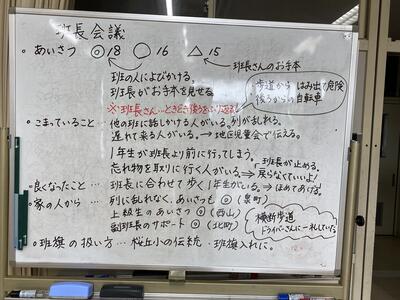 班長会議
○あいさつ ◎18 ○16 △15
班長さんのお手本
班の人によびかける。
班長がお手本を見せる。
歩道からはみ出て危険
後ろからの自転車
※班長さん…ときどき後ろをふり返る!
○こまっていること…他の班に話しかける人がいる。列が乱れる。
遅れて来る人がいる。→地区児童会で伝える。
1年生が班長より前に行ってしまう。
忘れ物を取りに行く人がいる。⇒「班長が止める。
戻らなくていいよ!
○良くなったこと…班長に合わせて歩く1年生がいる。→ほめてあげる。
○家の人から…列に乱れなく、あいさつも◎(泉町)
上級生のあいさつ◎(西山)
副班長のサポート◎(北町)
横断歩道
ドライバーさんに一礼していた
○班旗の扱い方…桜丘小の伝統…班旗入れに。